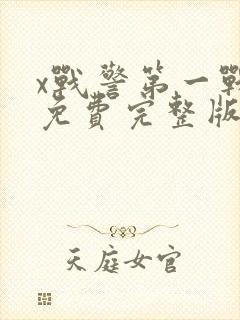 x戰警第一戰
免費完整版
天庭女官